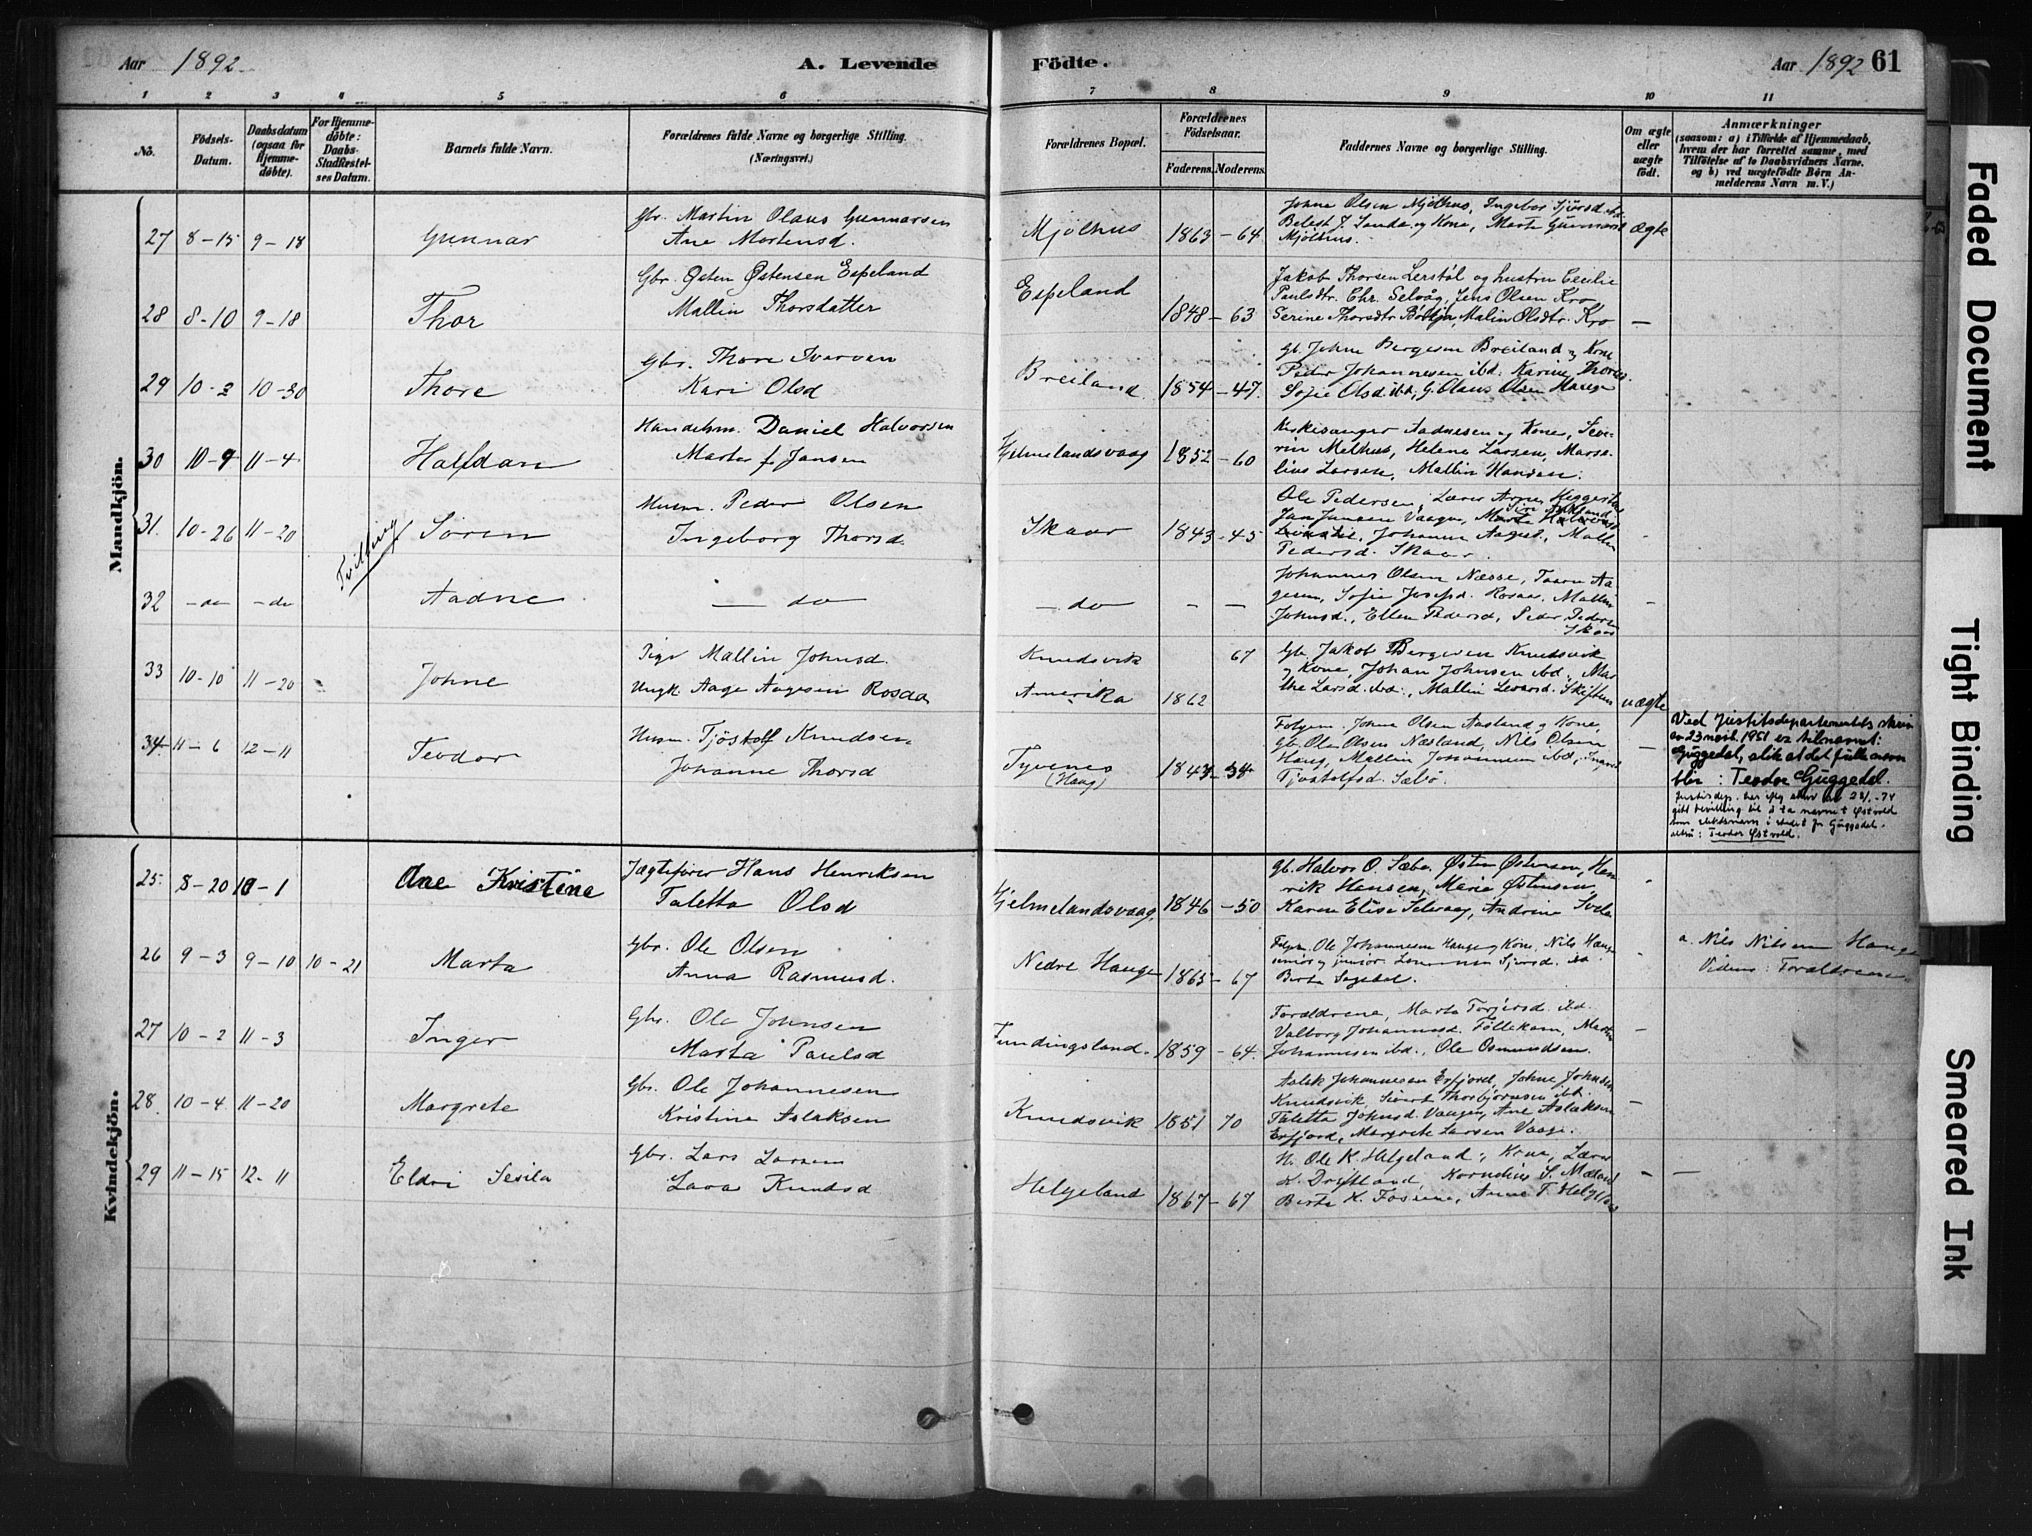 Aar 1892.
A. Levende
Födte.
Aar 1892 61
1 2 3 4 5 6 7 8 9 10 11
No.
Födsels-Datum.
Daabsdatum (ogsaa for Hjemme-døbte).
For Hjemme-døbte: Daabs-Stadfæstel-ses Datum.
Barnets fulde Navn.
Forældrenes fulde Navne og borgerlige Stilling.
(Næringsvei.)
Forældrenes Bopæl.
Forældrenes Födselsaar.
Faderens. Moderens.
Faddernes Navne og borgerlige Stilling.
Om ægte eller uægte födt.
Anmærkninger
(saasom: a) i Tilfælde af Hjemmedaab,
hvem der har forrettet samme, med
Tilföielse af to Daabsvidners Navne.
og b) ved uægtefödte Börn An-
melderens Navn m. V.)
Mandkjön.
27 8-15 9-18 Gunnar Gbr. Martin Olaus Gunnarsen
Ane Mortensd.
Mjølhus 1863-64
Johne Olsen Mjølhus, Ingebor Sjursd
Sande og Kone, Marta Gunnarsd
Mjølhus.
ægte
28 8-10 9-18 Thor Gbr. Østen Østensen Espeland
Mallin Thorsdatter
Espeland 1848-63
Jakob Thorsen Lerstøl og hustru Cecilie
Paulsdtr. Chr. Selvåg, Jens Olsen Kro
Serine Thorsdtr. Malin Olsdtr. Kro
—
29 10-3 10-30 Thore Gbr. Thore Ivarsen
Kari Olsd
Breiland 1854-47.
Gb. Johne Bergesen Breiland og Kone
Peder Johannesen ibd. Karine Thores.
Sofie Olsd ibd, G. Olaus Olsen Hauge
30 10-9 11-4 Halfdan Handelsm. Daniel Halvorsen
Marta f. Jansen
Hjelmelandsvaag 1852-60
Kirkesanger Aadnesen og Kone, Seve-
rin Melhus, Helene Larsen, Marse-
lius Larsen, Mallin Hansen.
31. 10-26 11-20 Tvilling Sören Husm. Peder Olsen
Ingeborg Thorsd.
Skaar 1843-45
Ole Pedersen, Lærer Arne
Jan Jansen Vaage, Marta
Johanne Mallin
Pedersd. Skaar.
32 -do -do Aadne — do
— do — —
Johannes Olsen Næsse, Taare Aa-
gesen, Sofie Josefsd. Rosaa, Mallin
Johnsd., Ellen Pedersd, Peder Pedersen
Skaar
33 10-10 11-20 Johne Pige Mallin Johnsd.
Ungk. Aage Aagesen Rosaa
Knudsvik 67
Amerika 1862
Gb. Jakob Bergesen Knudsvik
og Kone, Johan Johnsen ibd., Mar-
the Larsd. ibd., Mallin
uægte
34. 11-6 12-11 Teodor Husm. Tjöstolf Knudsen
Johanne Thorsd
Tyvenes
(Haug)
1843-34
Johne Olsen Aasland og Kone,
Gb. Ole Olsen Næsland, Nils Olsen
Haug, Mallin Johannesen ibd,
Tjostolfsd. Sæbø.
—
Ved Justitsdepartementets skriv
av 23 1951 er tilnavnet:
Guggedal, slik at det fulle navn
blir: Teodor Guggedal.
Justisdep. har iflg skriv av -74
gitt bevilling til å ta navnet Østvold
som slektsnavn i stedet for Guggedal.
altså: Teodor Østvold.
Kvindekjön.
25. 8-20 10-1 Ane Kristine Jægtefører Hans Henriksen
Taletta Olsd
Hjelmelandsvaag. 1846-50
Gb. Halvor O. Sæbø, Østen Østensen, Hen-
rik Hansen, Marie Østensen,
Karen Elise Selvaag, Andrine
26 9-3 9-10 10-21 Marta Gbr. Ole Olsen
Anna Rasmusd.
Nedre Hauge 1865-67
Ole Johannesen Hauge og Kone, Nils Hauge
senior og junior. Sjursd. ibd.
Berta Sagedal.
a. Nils Nilsen Hauge
Vidner: Forældrene
27 10-2 11-3 Inger Gbr. Ole Johnsen
Marta Paulsd
Fundingsland. 1859-64.
Forældrene, Marta Torgersd. ibd.
Valborg Johannesd. Töllekam, Martin
Johannesen ibd., Ole Osmundsen.
—
28. 10-4 11-20 Margrete Gbr. Ole Johannesen
Kristine Aslaksen
Knudsvik 1851 70
Aslak Johannesen Erfjord, Johne Johnsen
Knudsvik, Sivert Thorbjörnsen ibd.
Taletta Johnsd. Vaagen, Ane Aslaksen
Erfjord, Margrete Larsen Vaage.
—
29 11-15 12-11 Eldri Sesila Gbr. Lars Larsen
Lava Knudsd
Helgeland 1867-67
Ole K. Helgeland, Kone, Lærer
K. Kornelius S. Mæland
Berta K. Fossene, Anne T. Helgeland
— —
Faded Document
Tight Binding
Smeared Ink